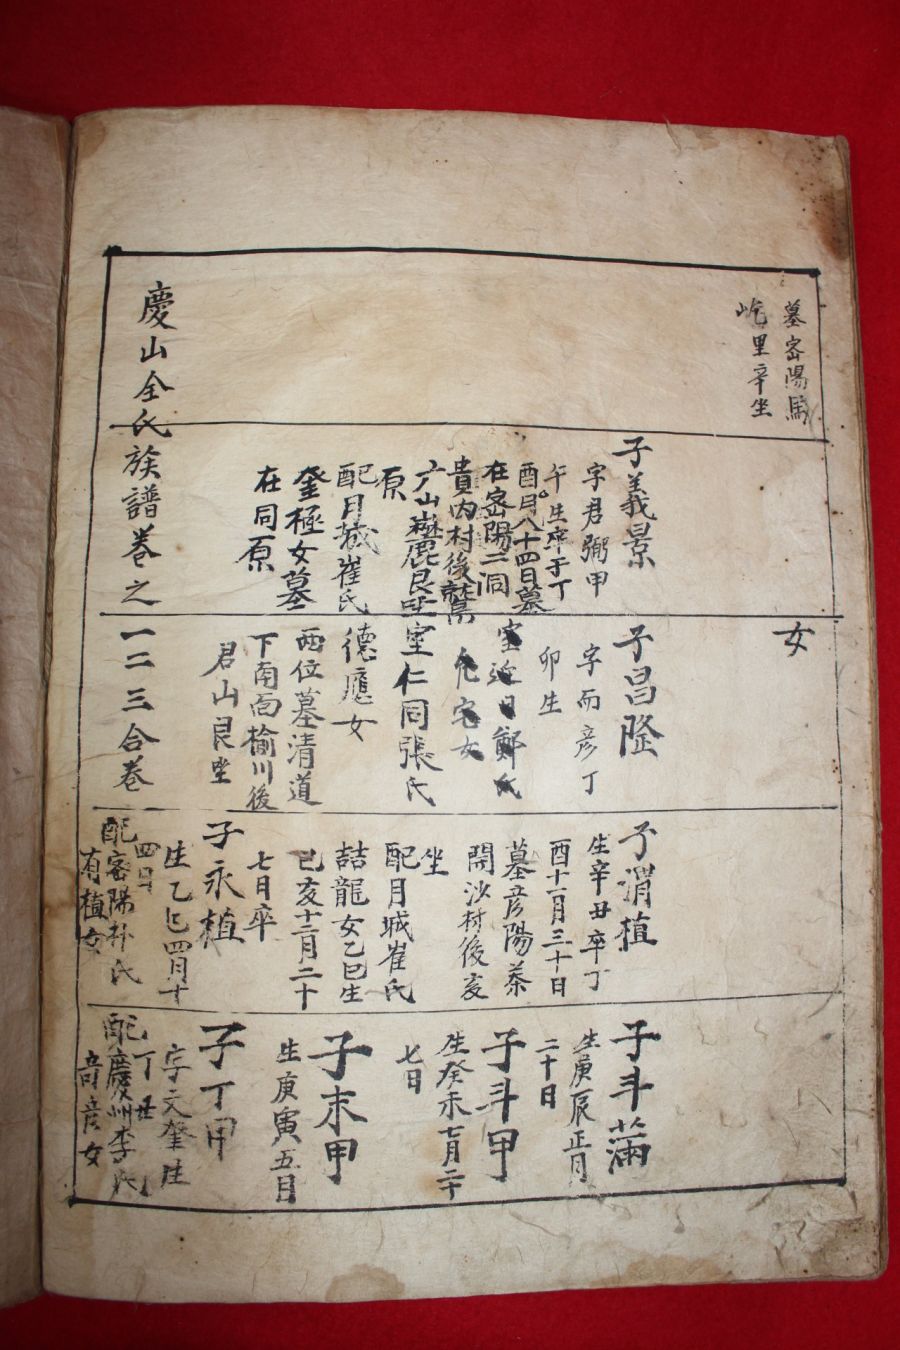 墓密陽馬
屹里辛坐
子義景
字君弼甲
午生卒于丁
酉月八十四日墓
在密陽二洞
貴內村後鷲
原
配月城崔氏
奎極女墓
在同原
女
子昌隆
字而彦丁
卯生
室仁同張氏
德應女
両位墓清道
下南面楡川後
君山艮坐
子渭植
生辛丑卒丁
酉十一月三十日
墓彦陽茶
開沙村後亥
坐
配月城崔氏
喆龍女乙巳生
己亥十二月二十
七日卒
子永植
生乙巳四月十
四日
配密陽朴氏
有植女
子斗滿
生庚辰正月
二十日
子斗甲
生癸未七月二十
七日
子末甲
生庚寅五月
子丁甲
字文奎生
配慶州李氏
慶山全氏族譜卷之一二三合卷